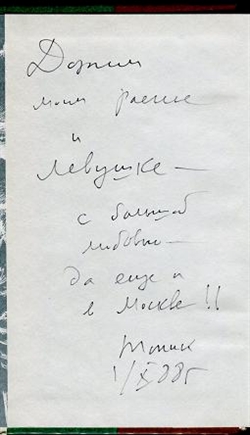 Дорогим
моим Раечке
и
Левушке —
с большой
любовью —
да еще и
в Москве!!
Толик
1/X 88 г